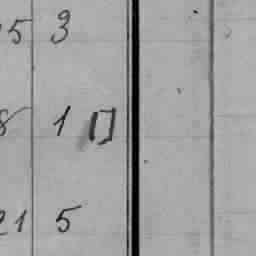 5 3
8 1 []
21 5